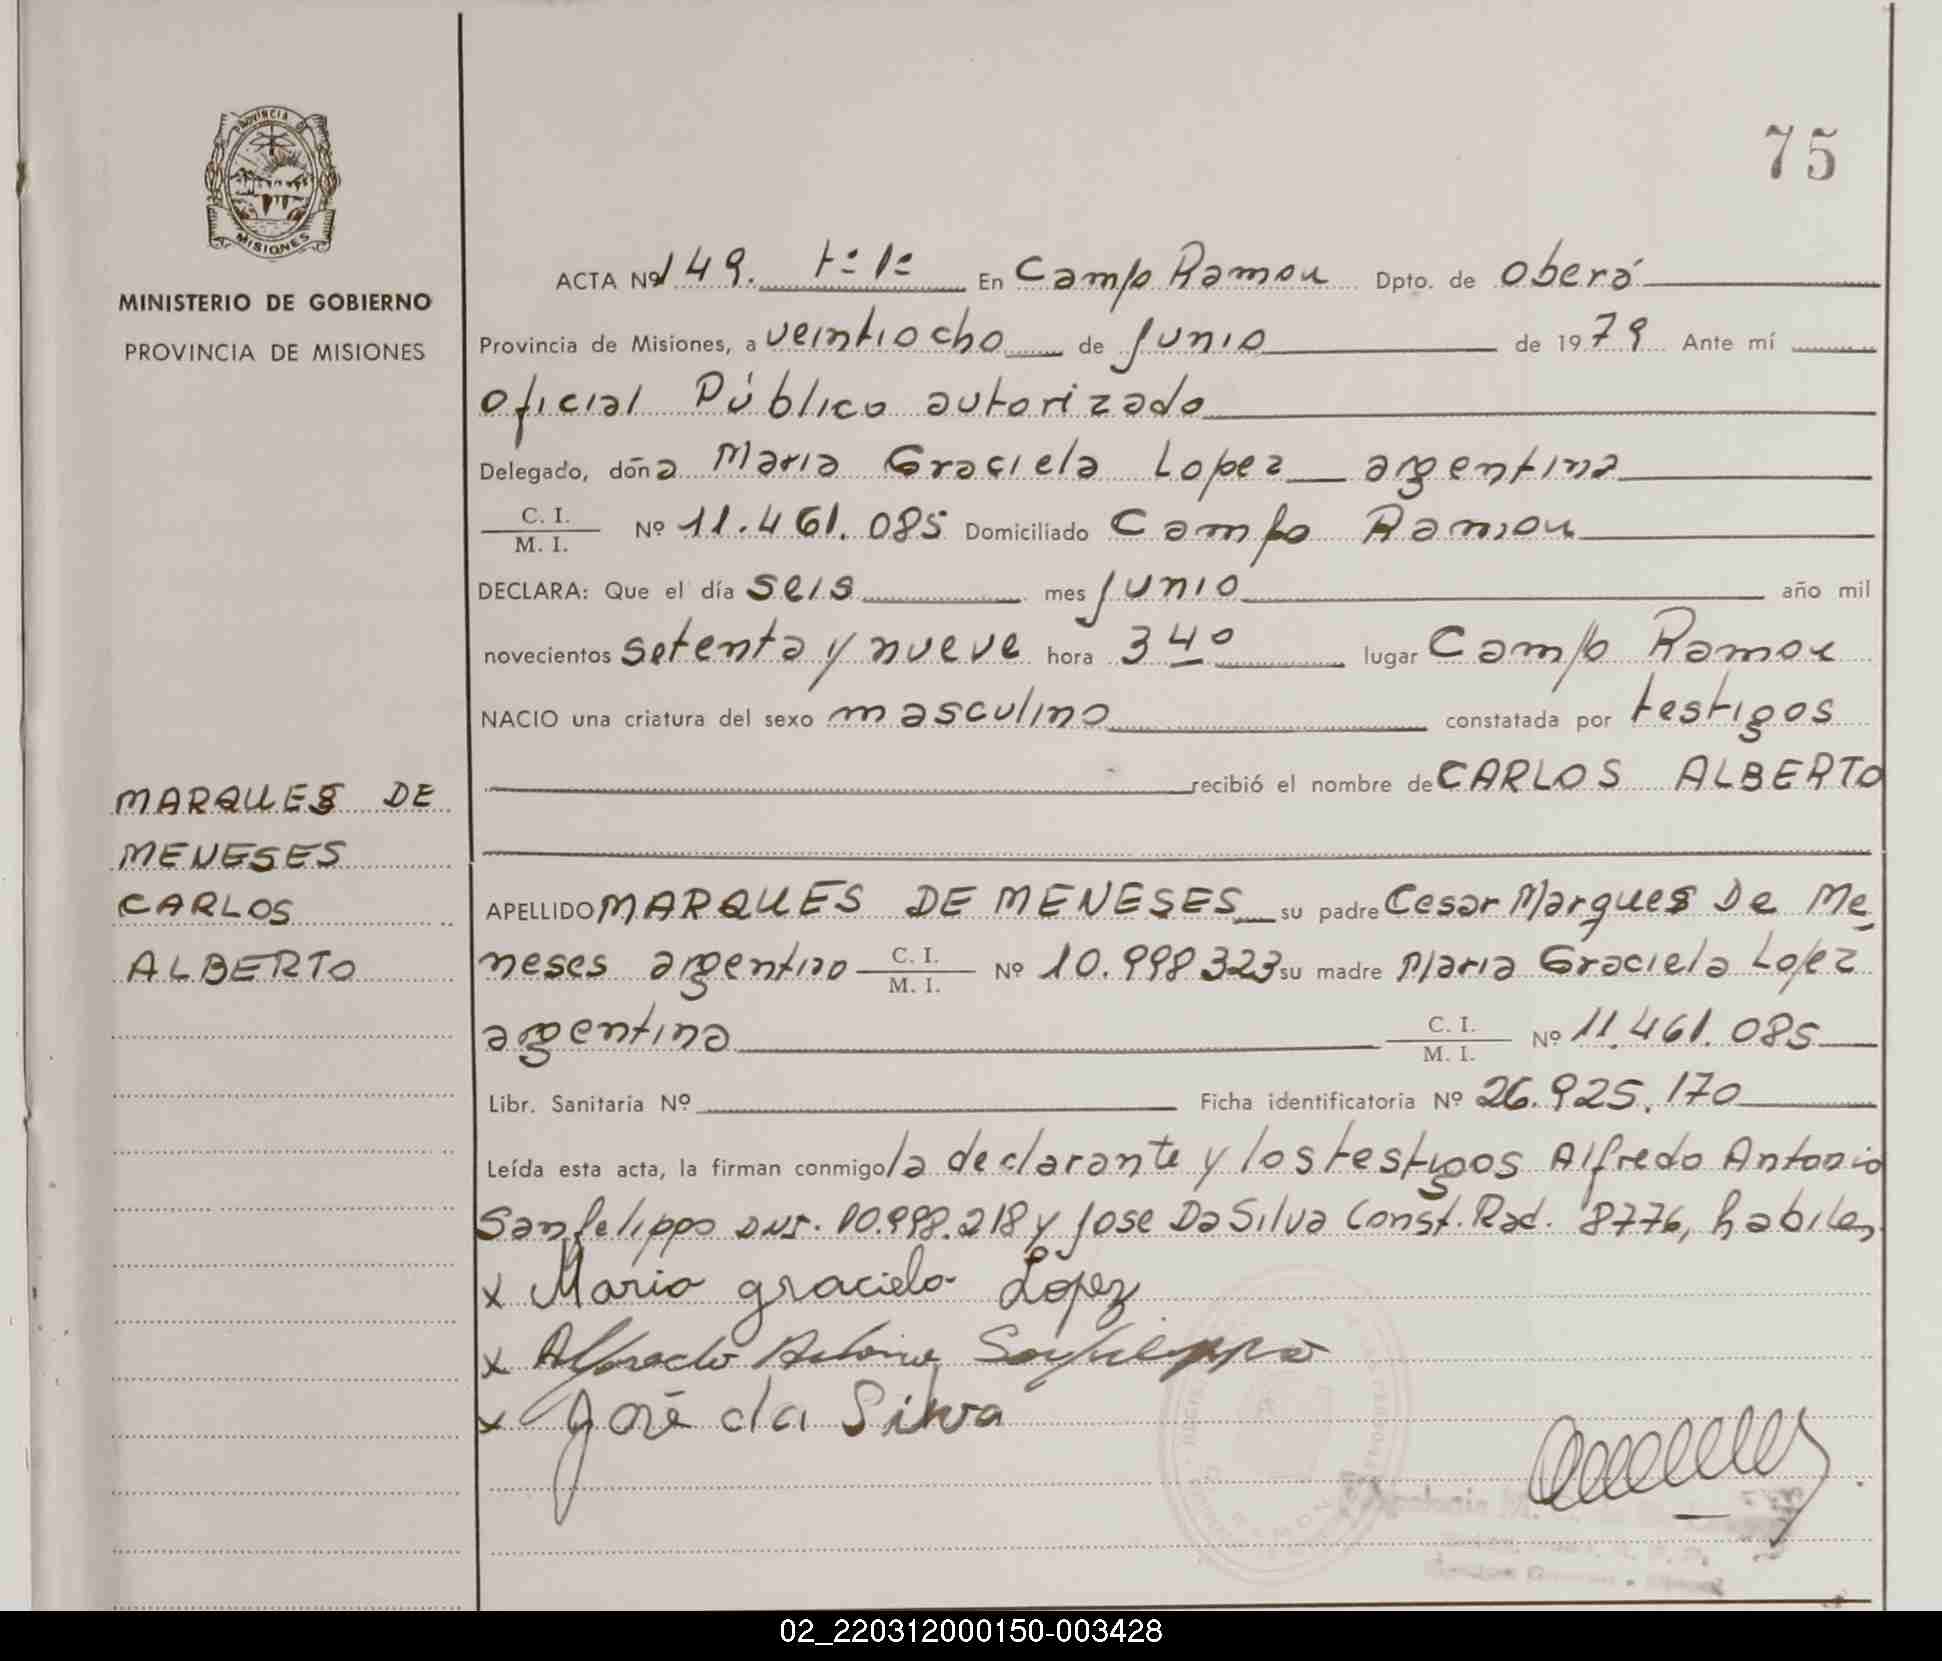 75
PROVINCIA DE
MISIONES
MINISTERIO DE GOBIERNO
PROVINCIA DE MISIONES
ACTA Nº 149. tº 1º En Campo Ramon Dpto. de Oberá
Provincia de Misiones, a veintiocho de Junio de 1979 Ante mí
Oficial Público autorizado
Delegado, doña Maria Graciela Lopez argentina
C. I.
M. I. Nº 11.461.085 Domiciliado Campo Ramon
DECLARA: Que el día seis mes Junio año mil
novecientos setenta y nueve hora 3 40 lugar Campo Ramon
NACIO una criatura del sexo masculino constatada por testigos
recibió el nombre de CARLOS ALBERTO
MARQUES DE
MENESES
CARLOS
ALBERTO
APELLIDO MARQUES DE MENESES su padre Cesar Marques De Me
neses argentino C. I. M. I. Nº 10.998323 su madre Maria Graciela Lopez
argentina C. I. M. I. Nº 11.461.085
Libr. Sanitaria Nº Ficha identificatoria Nº 26.925.170
Leída esta acta, la firman conmigo la declarante y los testigos Alfredo Antonio
Sanfelippo DNI. 10.998.218 y Jose Da Silva Const. Rad. 8776, habiles
x Maria graciela López
x Alfredo Antonio Sanfelippo
x José da Silva
02_220312000150-003428